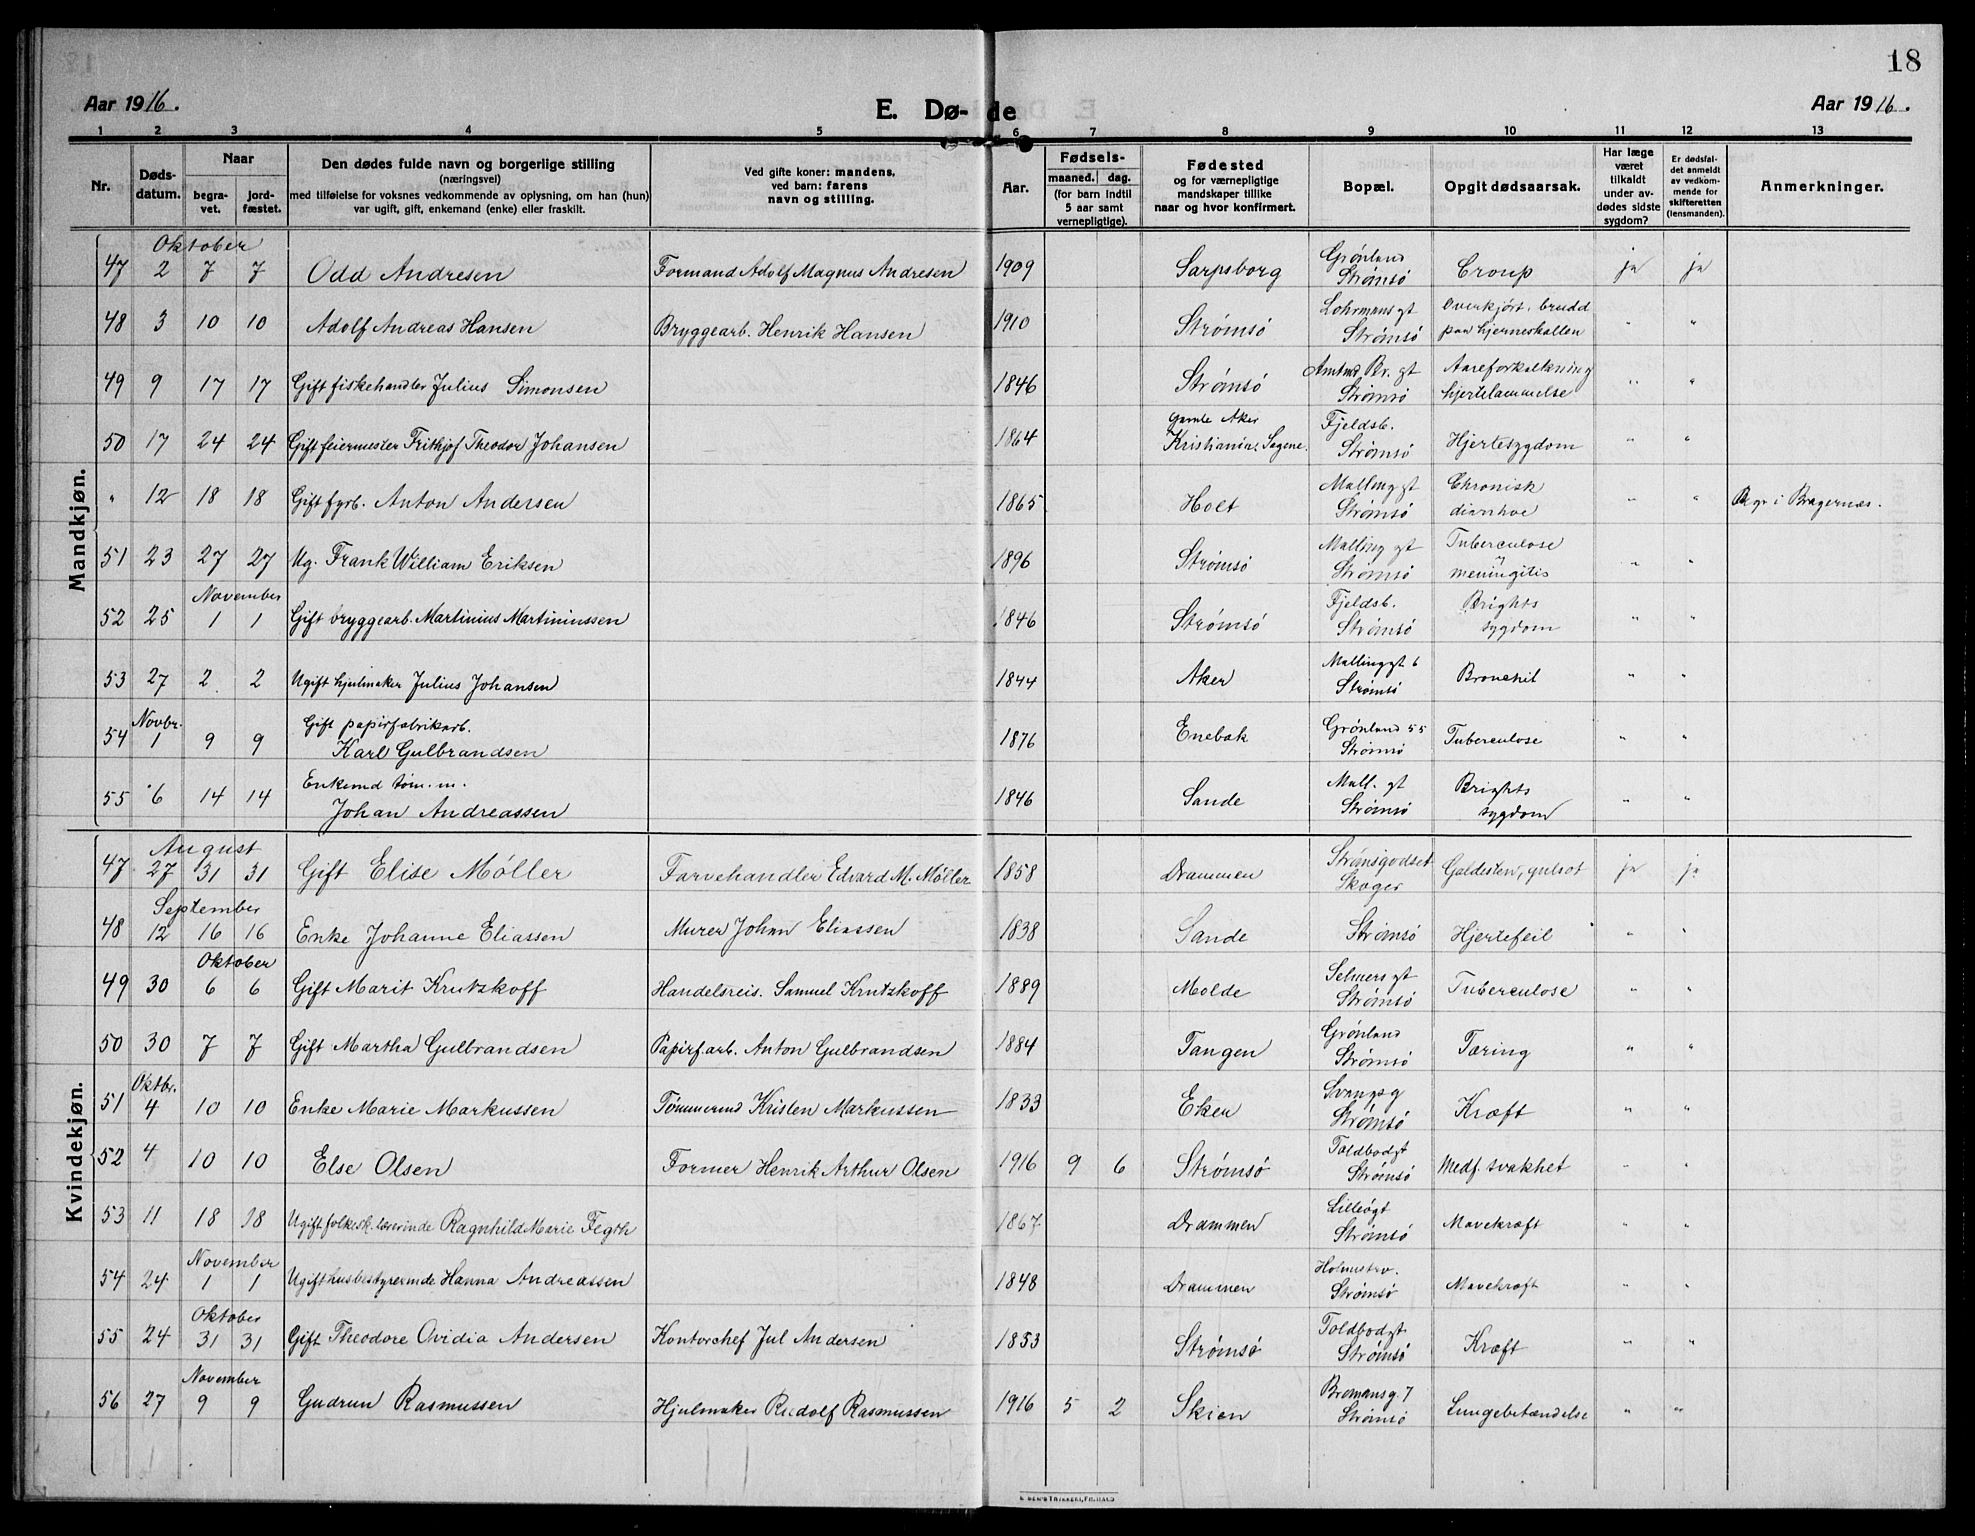 18
Aar 1916.
E. Dø- de
Aar 1916.
1 2 3 4 5 6 7 8 9 10 11 12 13
Nr.
Døds-
datum.
Naar
begra-
vet.
jord-
fæstet.
Den dødes fulde navn og borgerlige stilling
(næringsvei)
med tilføielse for voksnes vedkommende av oplysning, om han (hun)
var ugift, gift, enkemand (enke) eller fraskilt.
Ved gifte koner: mandens,
ved barn: farens
navn og stilling.
Aar.
Fødsels-
maaned. dag.
(for barn indtil
5 aar samt
vernepligtige).
Fødested
og for værnepligtige
mandskaper tillike
naar og hvor konfirmert.
Bopæl.
Opgit dødsaarsak.
Har læge
været
tilkaldt
under av-
dødes sidste
sygdom?
Er dødsfal-
det anmeldt
av vedkom-
mende for
skifteretten
(lensmanden).
Anmerkninger.
Mandkjøn.
Oktober Grønland
47 2 7 7 Odd Andresen Formand Adolf Magnus Andresen 1909 Sarpsborg Strømsö Croup ja ja
Lohrmans gt Overkjørt, brudd
48 3 10 10 Adolf Andreas Hansen Bryggearb. Henrik Hansen 1910 Strømsö Strømsö paa hjerneskallen " "
Amtmd Bl. gt Aareforkalkning
49 9 17 17 Gift fiskehandler Julius Simonsen 1846 Strømsö Strømsö hjertelammelse " "
Gamle Aker Fjeldsb.
50 17 24 24 Gift feiermester Frithjof Theodor Johansen 1864 Kristiania, Sagene. Strømsö Hjertesygdom " "
Malling gt Chronisk
" 12 18 18 Gift fyrb. Anton Andersen 1865 Holt Strømsö diarrhoe " " Begr i Bragernæs.
Malling gt Tuberculose
51 23 27 27 Ug. Frank William Eriksen 1896 Strømsö Strømsö meningitis " "
November Fjeldsb. Brights
52 25 1 1 Gift bryggearb. Martinius Martiniussen 1846 Strømsö Strømsö sygdom " "
Malling gt 6
53 27 2 2 Ugift hjulmaker Julius Johansen 1844 Aker Strømsö Bronchit " "
Novbr. Gift papirfabrikarb. Grønland 55
54 1 9 9 Karl Gulbrandsen 1876 Enebak Strømsö Tuberculose " "
Enkemd tøm. m. Mall. gt Brights
55 6 14 14 Johan Andreassen 1846 Sande Strømsö sygdom " "
Kvindekjøn.
August Strømsgodset
47 27 31 31 Gift Elise Møller Farvehandler Edvard M. Møller 1858 Drammen Skoger Galdesten, gulsot ja ja
September
48 12 16 16 Enke Johanne Eliassen Murer Johan Eliassen 1838 Sande Strømsö Hjertefeil " "
Oktober Selmers gt
49 30 6 6 Gift Marit Krutzkoff Handelsreis. Samuel Krutzkoff 1889 Molde Strømsö Tuberculose " "
Grønland
50 30 7 7 Gift Martha Gulbrandsen Papirf.arb. Anton Gulbrandsen 1884 Tangen Strømsö Tæring " "
Oktbr. Svangsg
51 4 10 10 Enke Marie Markussen Tømmermd Kristen Markussen 1833 Eker Strømsö Kræft " "
Toldbodgt
52 4 10 10 Else Olsen Former Henrik Arthur Olsen 1916 9 6 Strømsö Strømsö Medf. svakhet " "
Lilleögt
53 11 18 18 Ugift folkesk.lærerinde Ragnhild Marie Fegth 1867 Drammen Strømsö Mavekræft " "
November Holmestrv.
54 24 1 1 Ugift husbestyrerinde Hanna Andreassen 1848 Drammen Strømsö Mavekræft " "
Oktober Toldbodgt
55 24 31 31 Gift Theodore Ovidia Andersen Kontorchef Jul Andersen 1853 Strømsö Strømsö Kræft " "
November Bromansg. 7
56 27 9 9 Gudrun Rasmussen Hjulmaker Rudolf Rasmussen 1916 5 2 Skien Strømsö Lungebetændelse " "